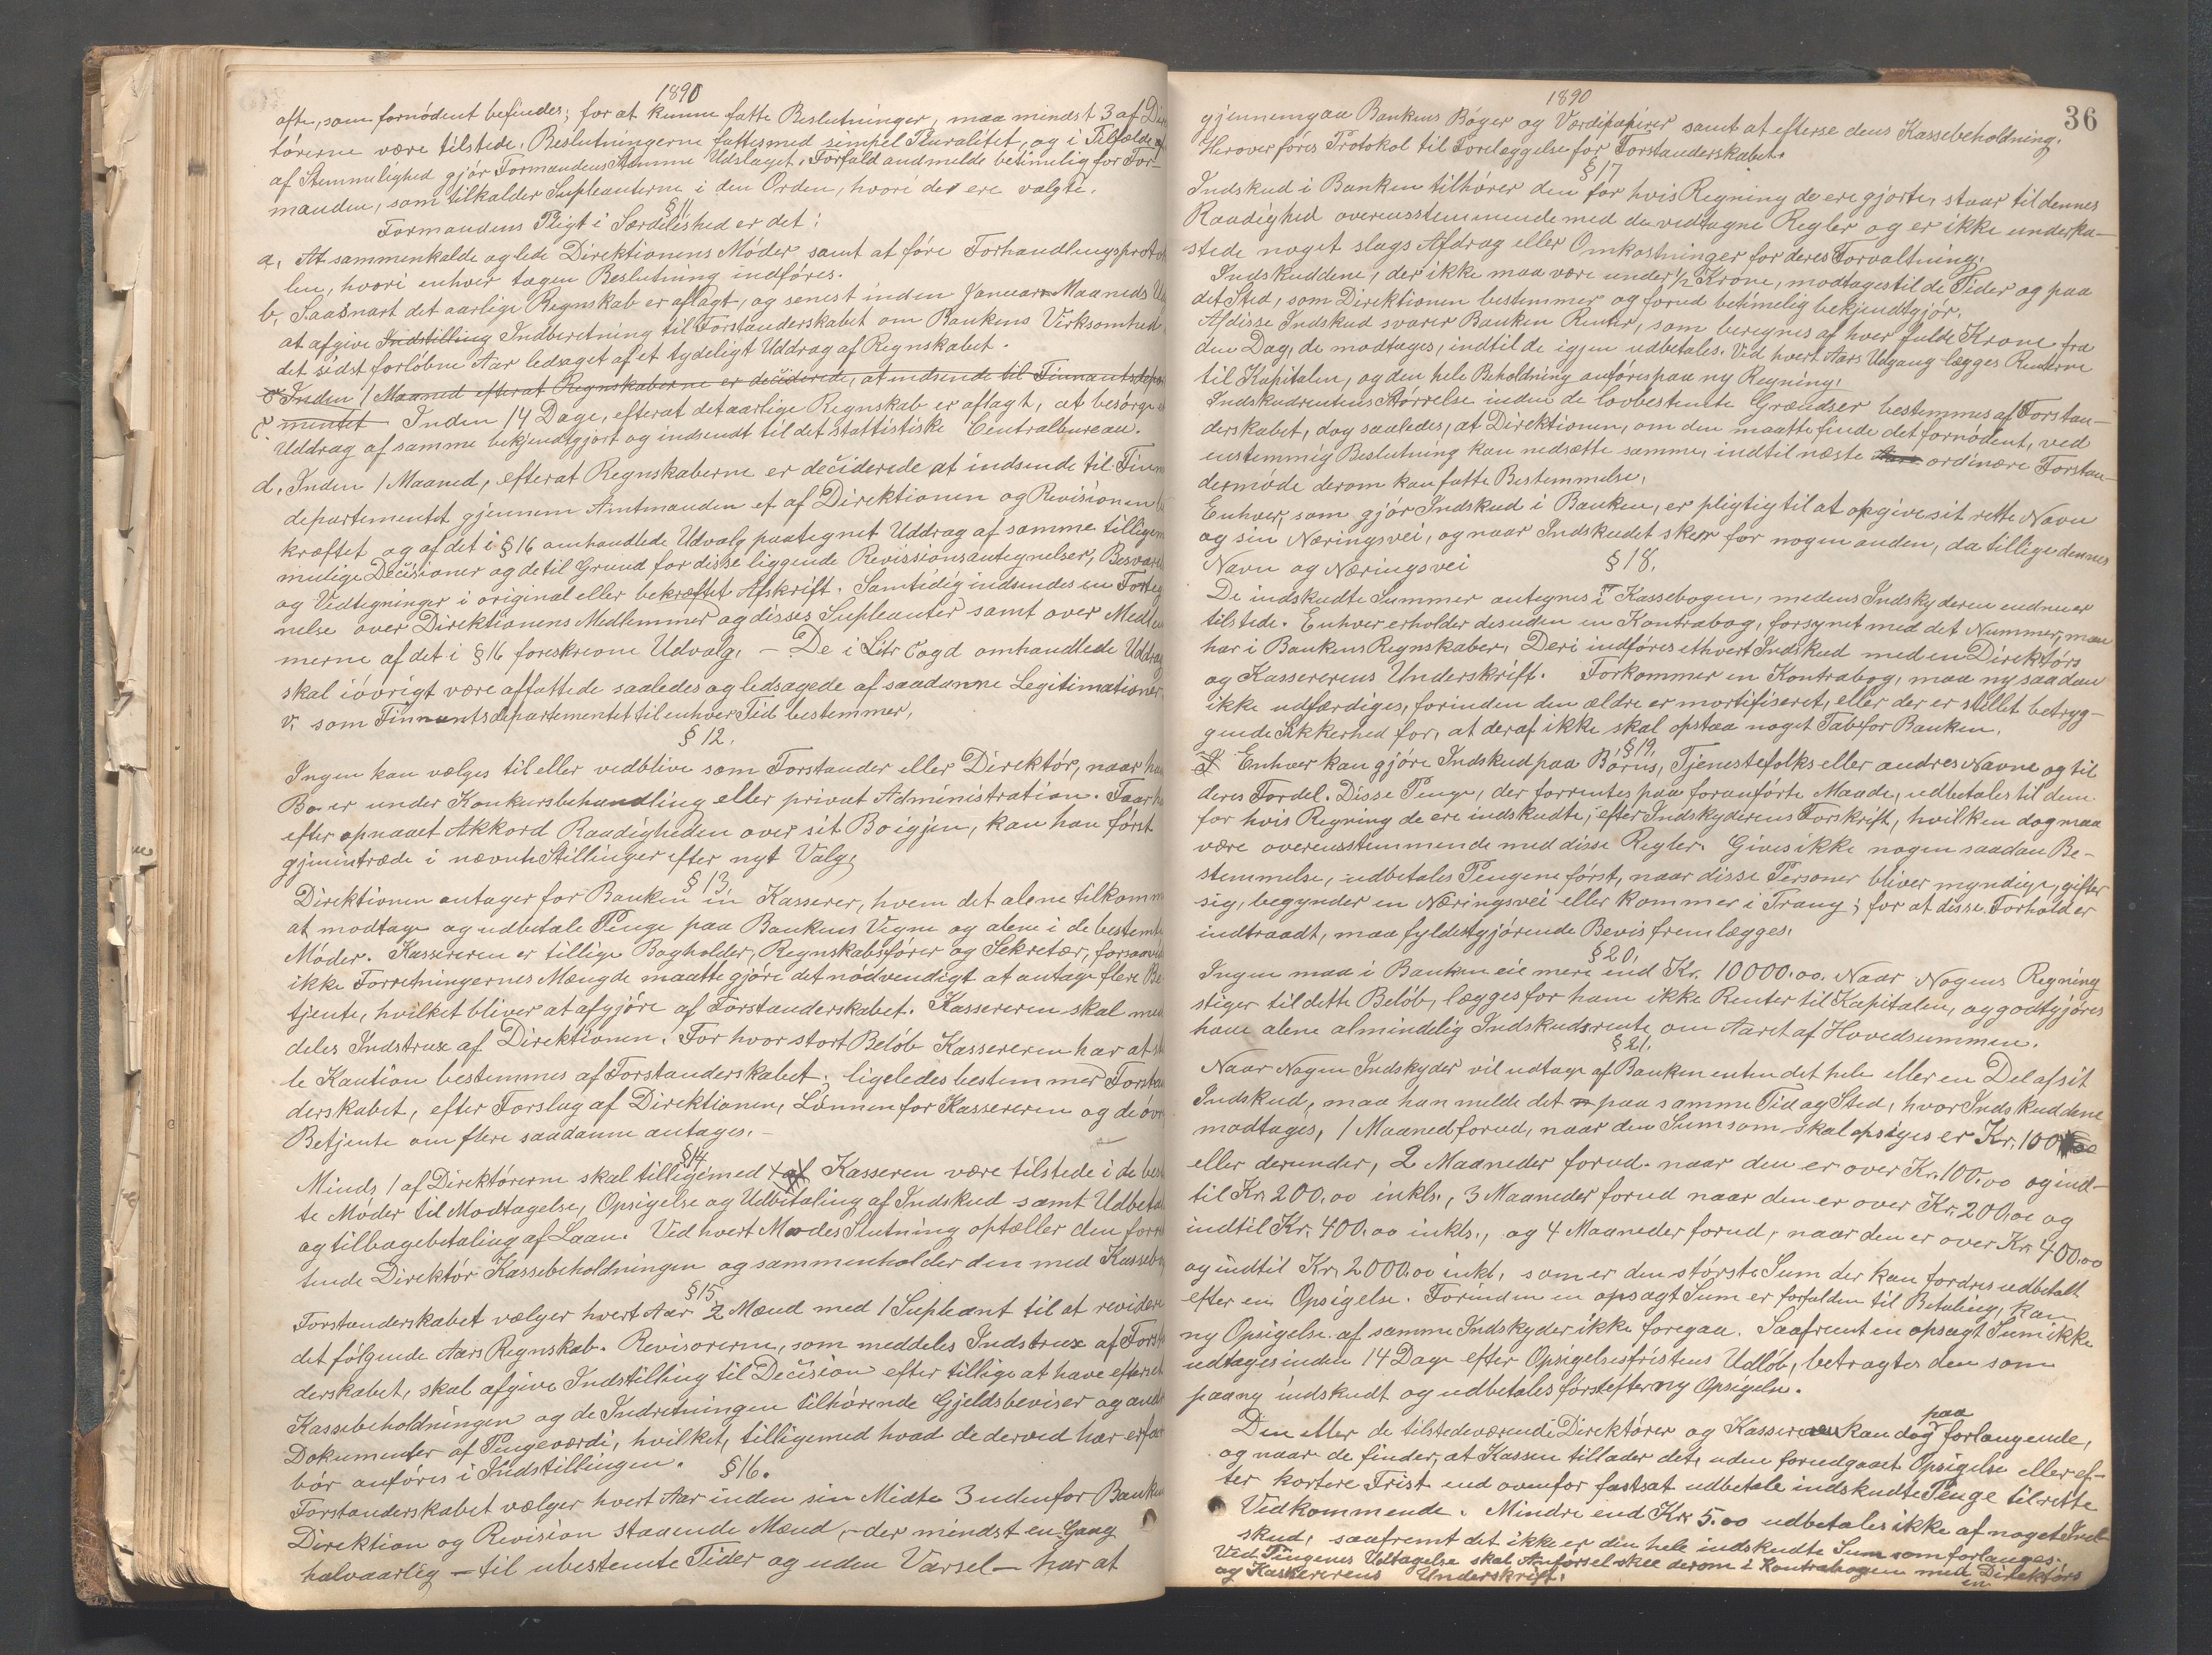 1890
ofte, som fornødent befindes; for at kunne fatte Beslutninger, maa mindst 3 af Direk
tørerne være tilstede. Beslutningerne fattes med simpel Pluralitet, og i Tilfælde af
af Stemmelighed gjør Formandens Stemme Udslaget. Forfald anmelde betimelig for For-
manden, som tilkalder Supleanterne i den Orden, hvori de ere valgte.
§ 11
Formandens Pligt i Særdeleshed er det:
a, At sammenkalde og lede Direktionens Møder samt at føre Forhandlingsproto
len, hvori enhver tagen Beslutning indføres.
b, Saasnart det aarlige Regnskab er aflagt, og senest inden Januar Maaneds Ud
at afgive Indstilling Indberetning til Forstanderskabet om Bankens Virksomhed i
det sidst forløbne Aar ledsaget af et tydeligt Uddrag af Regnskabet.
c Inden 1 Maaned efterat Regnskaberne er deciderede, at indsende til Finantsdepar
c. mentet Inden 14 Dage, efterat det aarlige Regnskab er aflagt, at besørge et
Uddrag af samme bekjendtgjort og indsendt til det stattistiske Centralbureau.
d, Inden 1 Maaned, efterat Regnskaberne er deciderede at indsende til Finn
departementet gjennem Amtmanden et af Direktionen og Revisionen be
kræftet og af det i § 16 omhandlede Udvalg paategnet Uddrag af samme tilligem
mulige Decisioner og de til Grund for disse liggende Revissionsantegnelser, Besvare
og Vedtegninger i original eller bekræftet Afskrift. Samtidig indsendes en Forteg
nelse over Direktionens Medlemmer og disses Supleanter samt over Medlem
merne af det i § 16 foreskrevne Udvalg. — De i Litr c og d omhandlede Uddrag
skal iøvrigt være affattede saaledes og ledsagede af saadanne Legitimationer
v. som Finnantsdepartementet til enhver Tid bestemmer,
§ 12.
Ingen kan vælges til eller vedblive som Forstander eller Direktør, naar han
Bo er under Konkursbehandling eller privat Administration. Faar ha
efter opnaaet Akkord Raadigheden over sit Bo igjen, kan han først
gjenindtræde i nævnte Stillinger efter nyt Valg.
§ 13.
Direktionen antager for Banken en Kasserer, hvem det alene tilkomm
at modtage og udbetale Penge paa Bankens Vegne og alene i de bestemte
Møder. Kassereren er tillige Bogholder, Regnskabsfører og Sekretær, forsaavidt
ikke Forretningernes Mængde maatte gjøre det nødvendigt at antage flere Be
tjente, hvilket bliver at afgjøre af Forstanderskabet. Kassereren skal med
deles Indstrux af Direktionen. For hvor stort Beløb Kassereren har at stil
le Kaution bestemmes af Forstanderskabet; ligeledes bestemmer Forstan
derskabet, efter Forslag af Direktionen, Lønnen for Kassereren og de øvr
Betjente om flere saadanne antages. —
§ 14
Minds 1 af Direktørerne skal tilligemed Kasseren være tilstede i de best
te Møder til Modtagelse, Opsigelse og Udbetaling af Indskud samt Udbetal
og tilbagebetaling af Laan. Ved hvert Mødes Slutning optæller den forre
tende Direktør Kassebeholdningen og sammenholder den med Kassebog
§ 15
Forstanderskabet vælger hvert Aar 2 Mænd med 1 Supleant til at revidere
det følgende Aars Regnskab. Revisorerne, som meddeles Indstrux af Forst
derskabet, skal afgive Indstilling til Decision efter tillige at have efterset
Kassebeholdningen og de Indretningen tilhørende Gjeldsbeviser og andr
Dokumenter af Pengeværdi, hvilket, tilligemed hvad de derved har erfar
bør anføres i Indstillingen.
§ 16.
Forstanderskabet vælger hvert Aar inden sin Midte 3 udenfor Banken
Direktion og Revision staaende Mænd, — der mindst en Gang
halvaarlig — til ubestemte Tider og uden Varsel — har at
1890
36
gjennemgaa Bankens Bøger og Værdipapirer samt at efterse dens Kassebeholdning.
Herover føres Protokol til Foreleggelse for Forstanderskabet.
§ 17
Indskud i Banken tilhører den for hvis Regning de ere gjorte, staar til dennes
Raadighed overensstemmende med de vedtagne Regler og er ikke underka-
stede noget slags Afdrag eller Omkostninger for deres Forvaltning.
Indskuddene, der ikke maa være under 1/2 Krone, modtages til de Tider og paa
det Sted, som Direktionen bestemmer og forud betimelig bekjendtgjør.
Af disse Indskud svarer Banken Renter, som beregnes af hver fulde Krone fra
den Dag, de modtages, indtil de igjen udbetales. Ved hvert Aars Udgang lægges Renterne
til Kapitalen, og den hele Beholdning anføres paa ny Regning.
Indskudrentens Størrelse inden de lovbestemte Grændser bestemmes af Forstan-
derskabet, dog saaledes, at Direktionen, om den maatte finde det fornødent, ved
enstemmig Beslutning kan nedsætte samme, indtil næste ordinære Forstan-
dermøde derom kan fatte Bestemmelse.
Enhver, som gjør Indskud i Banken, er pligtig til at opgive sit rette Navn
og sin Næringsvei, og naar Indskudet sker for nogen anden, da tillige dennes
Navn og Næringsvei
§ 18.
De indskudte Summer antegnes i Kassebogen, medens Indskyderen endnu er
tilstede. Enhver erholder desuden en Kontrabog, forsynet med det Nummer, man
har i Bankens Regnskaber, Deri indføres ethvert Indskud med en Direktørs
og Kassererens Underskrift. Forkommer en Kontrabog, maa ny saadan
ikke udfærdiges, forinden den ældre er mortifiseret, eller der er stillet betryg-
gende Sikkerhed for, at deraf ikke skal opstaa noget Tab for Banken.
§ 19.
Enhver kan gjøre Indskud paa Børns, Tjenestefolks eller andres Navne og til
deres Fordel. Disse Penge, der forrentes paa foranførte Maade, udbetales til dem
for hvis Regning de ere indskudte, efter Indskyderens Forskrift, hvilken dog maa
være overensstemmende med disse Regler. Gives ikke nogen saadan Be-
stemmelse, udbetales Pengene først, naar disse Personer bliver myndige, gifter
sig, begynder en Næringsvei eller kommer i Trang; for at disse Forhold er
indtraadt, maa fyldestgjørende Bevis fremlægges.
§ 20.
Ingen maa i Banken eie mere end Kr. 10000.00. Naar Nogens Regning
stiger til dette Beløb, lægges for ham ikke Renter til Kapitalen, og godtgjøres
ham alene almindelig Indskudsrente om Aaret af Hovedsummen.
§ 21.
Naar Nogen Indskyder vil udtage af Banken enten det hele eller en Del af sit
Indskud, maa han melde det paa samme Tid og Sted, hvor Indskuddene
modtages, 1 Maaned forud, naar den Sum som skal opsiges er Kr. 100
eller derunder, 2 Maaneder forud naar den er over Kr. 100.00 og ind-
til Kr. 200.00 inkls., 3 Maaneder forud naar den er over Kr. 200.00 og
indtil Kr. 400.00 inkls., og 4 Maaneder forud, naar den er over Kr. 400.00
og indtil Kr. 2000.00 inkl. som er den største Sum der kan fordres udbetalt
efter en Opsigelse. Forinden en opsagt Sum er forfalden til Betaling, kan
ny Opsigelse af samme Indskyder ikke foregaa. Saafremt en opsagt Sum ikke
udtages inden 14 Dage efter Opsigelsesfristens Udløb, betragtes den som
paany indskudt og udbetales først efter ny Opsigelse.
paa
Den eller de tilstedeværende Direktører og Kassereren kan dog forlangende,
og naar de finder, at Kassen tillader det, uden forudgaaet Opsigelse eller ef-
ter kortere Frist end ovenfor fastsat udbetale indskudte Penge til rette
Vedkommende. Mindre end Kr 5.00 udbetales ikke af noget Ind-
skud, saafremt det ikke er den hele indskudte Sum som forlanges.
Ved Pengenes Udtagelse skal Anførsel skee derom i Kontrabogen med Direktørs
en
og Kassererens Underskrift.